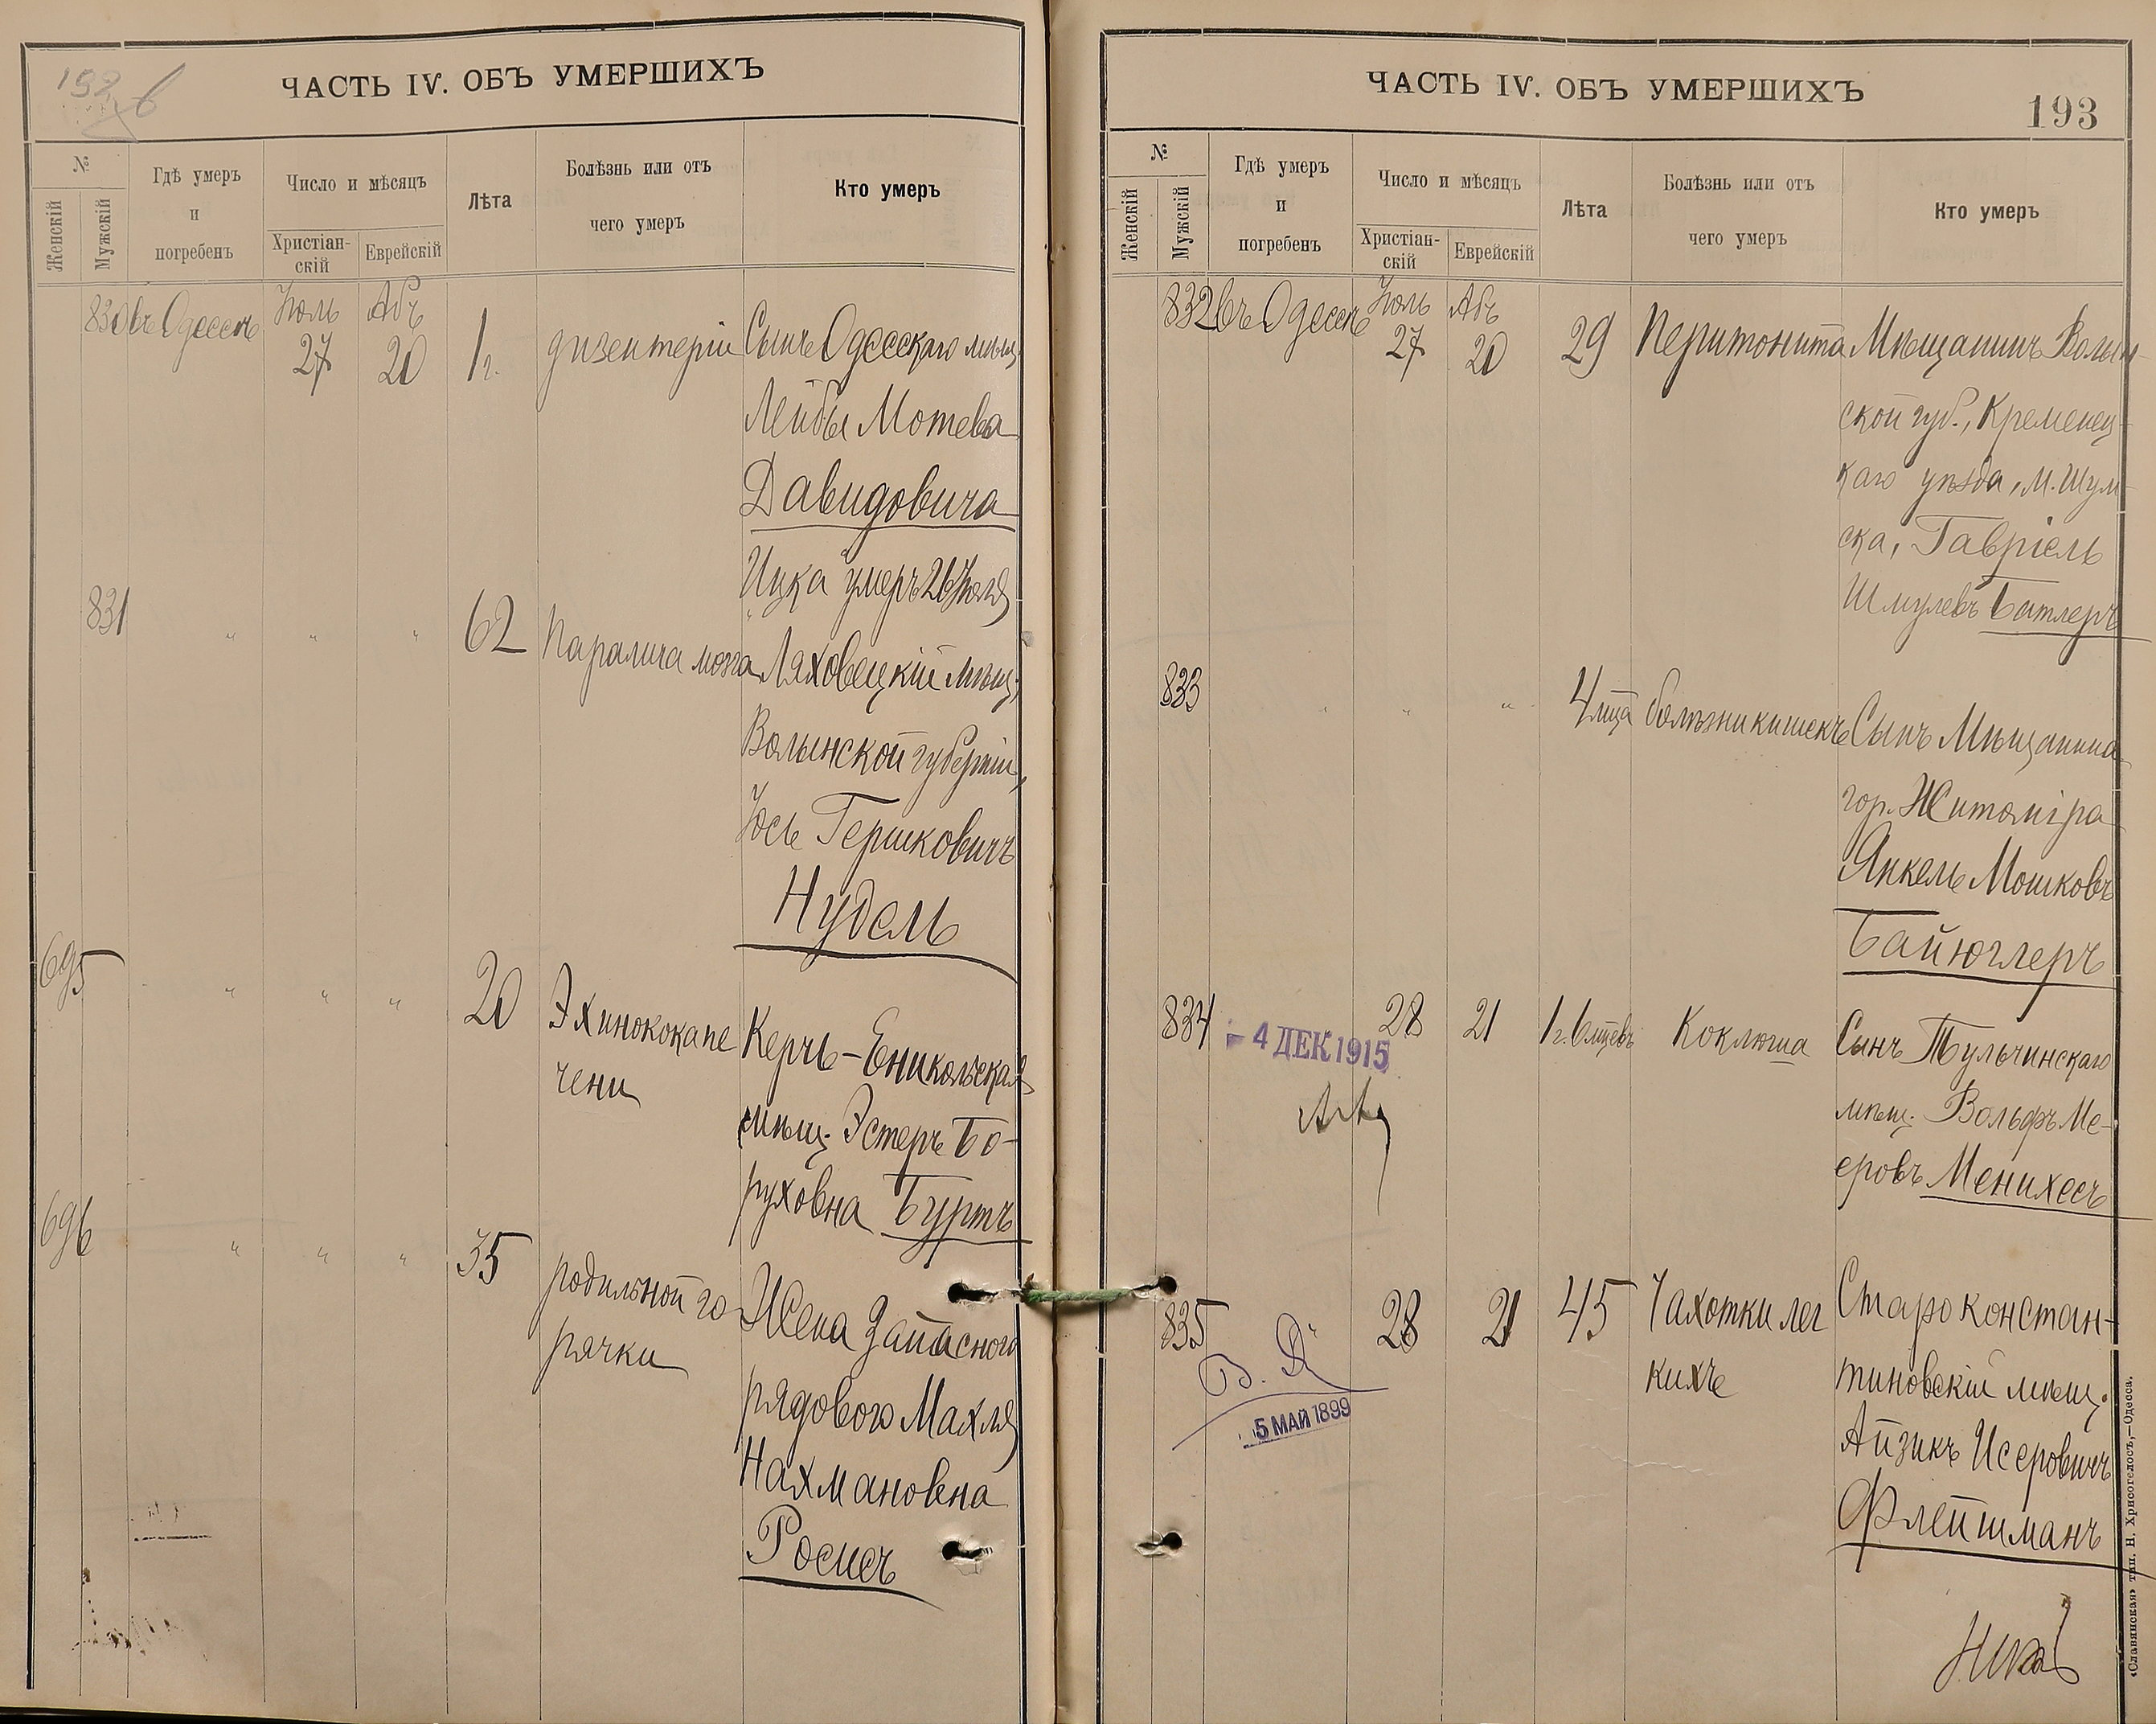 ЧАСТЬ IV. ОБЪ УМЕРШИХЪ
№
Женскій
Мужскій
Гдѣ умеръ
и
погребенъ
Число и мѣсяцъ
Христіан-
скій
Еврейскій
Лѣта
Болѣзнь или отъ
чего умеръ
Кто умеръ
830 въ Одессѣ Іюль 27 Абъ 20 1 г. дизентеріи Сынъ Одесскаго мѣщ.
Лейбы Мотева
Давидовича
Ицка умеръ 26 Іюля
831 " " " 62 Паралича мозга Ляховецкій мѣщ.,
Волынской губерніи,
Іось Гершковичъ
Нудель
695 " " " 20 Эхинококка пе
чени
Керчь-Еникольская
мѣщ. Эстеръ Бо-
руховна Буртъ
696 " " " 35 родильной го
рячки
Жена Запасного
рядового Махля
Нахмановна
Росисъ
ЧАСТЬ IV. ОБЪ УМЕРШИХЪ
193
№
Женскій
Мужскій
Гдѣ умеръ
и
погребенъ
Число и мѣсяцъ
Христіан-
скій
Еврейскій
Лѣта
Болѣзнь или отъ
чего умеръ
Кто умеръ
832 въ Одессѣ Іюль 27 Абъ 20 29 Перитонита Мѣщанинъ Волын-
ской губ., Кременец-
каго уѣзда, м. Шум-
ска, Гавріель
Шмулевъ Батлеръ
833 " " " 4 мца болѣзни кишекъ Сынъ Мѣщанина
гор. Житоміра
Янкель Мошковъ
Байюглеръ
834 28 21 1 г. 6 мцевъ Коклюша Сынъ Тульчинскаго
мѣщ. Вольфъ Ме-
еровъ Менихесъ
- 4 ДЕК 1915
835 28 21 45 Чахотки лег
кихъ
Староконстан-
тиновскій мѣщ.
Айзикъ Исеровичъ
Флейшманъ
В. Д.
5 МАЙ 1899
«Славянская» тип. Н. Хрисогелосъ,—Одесса.